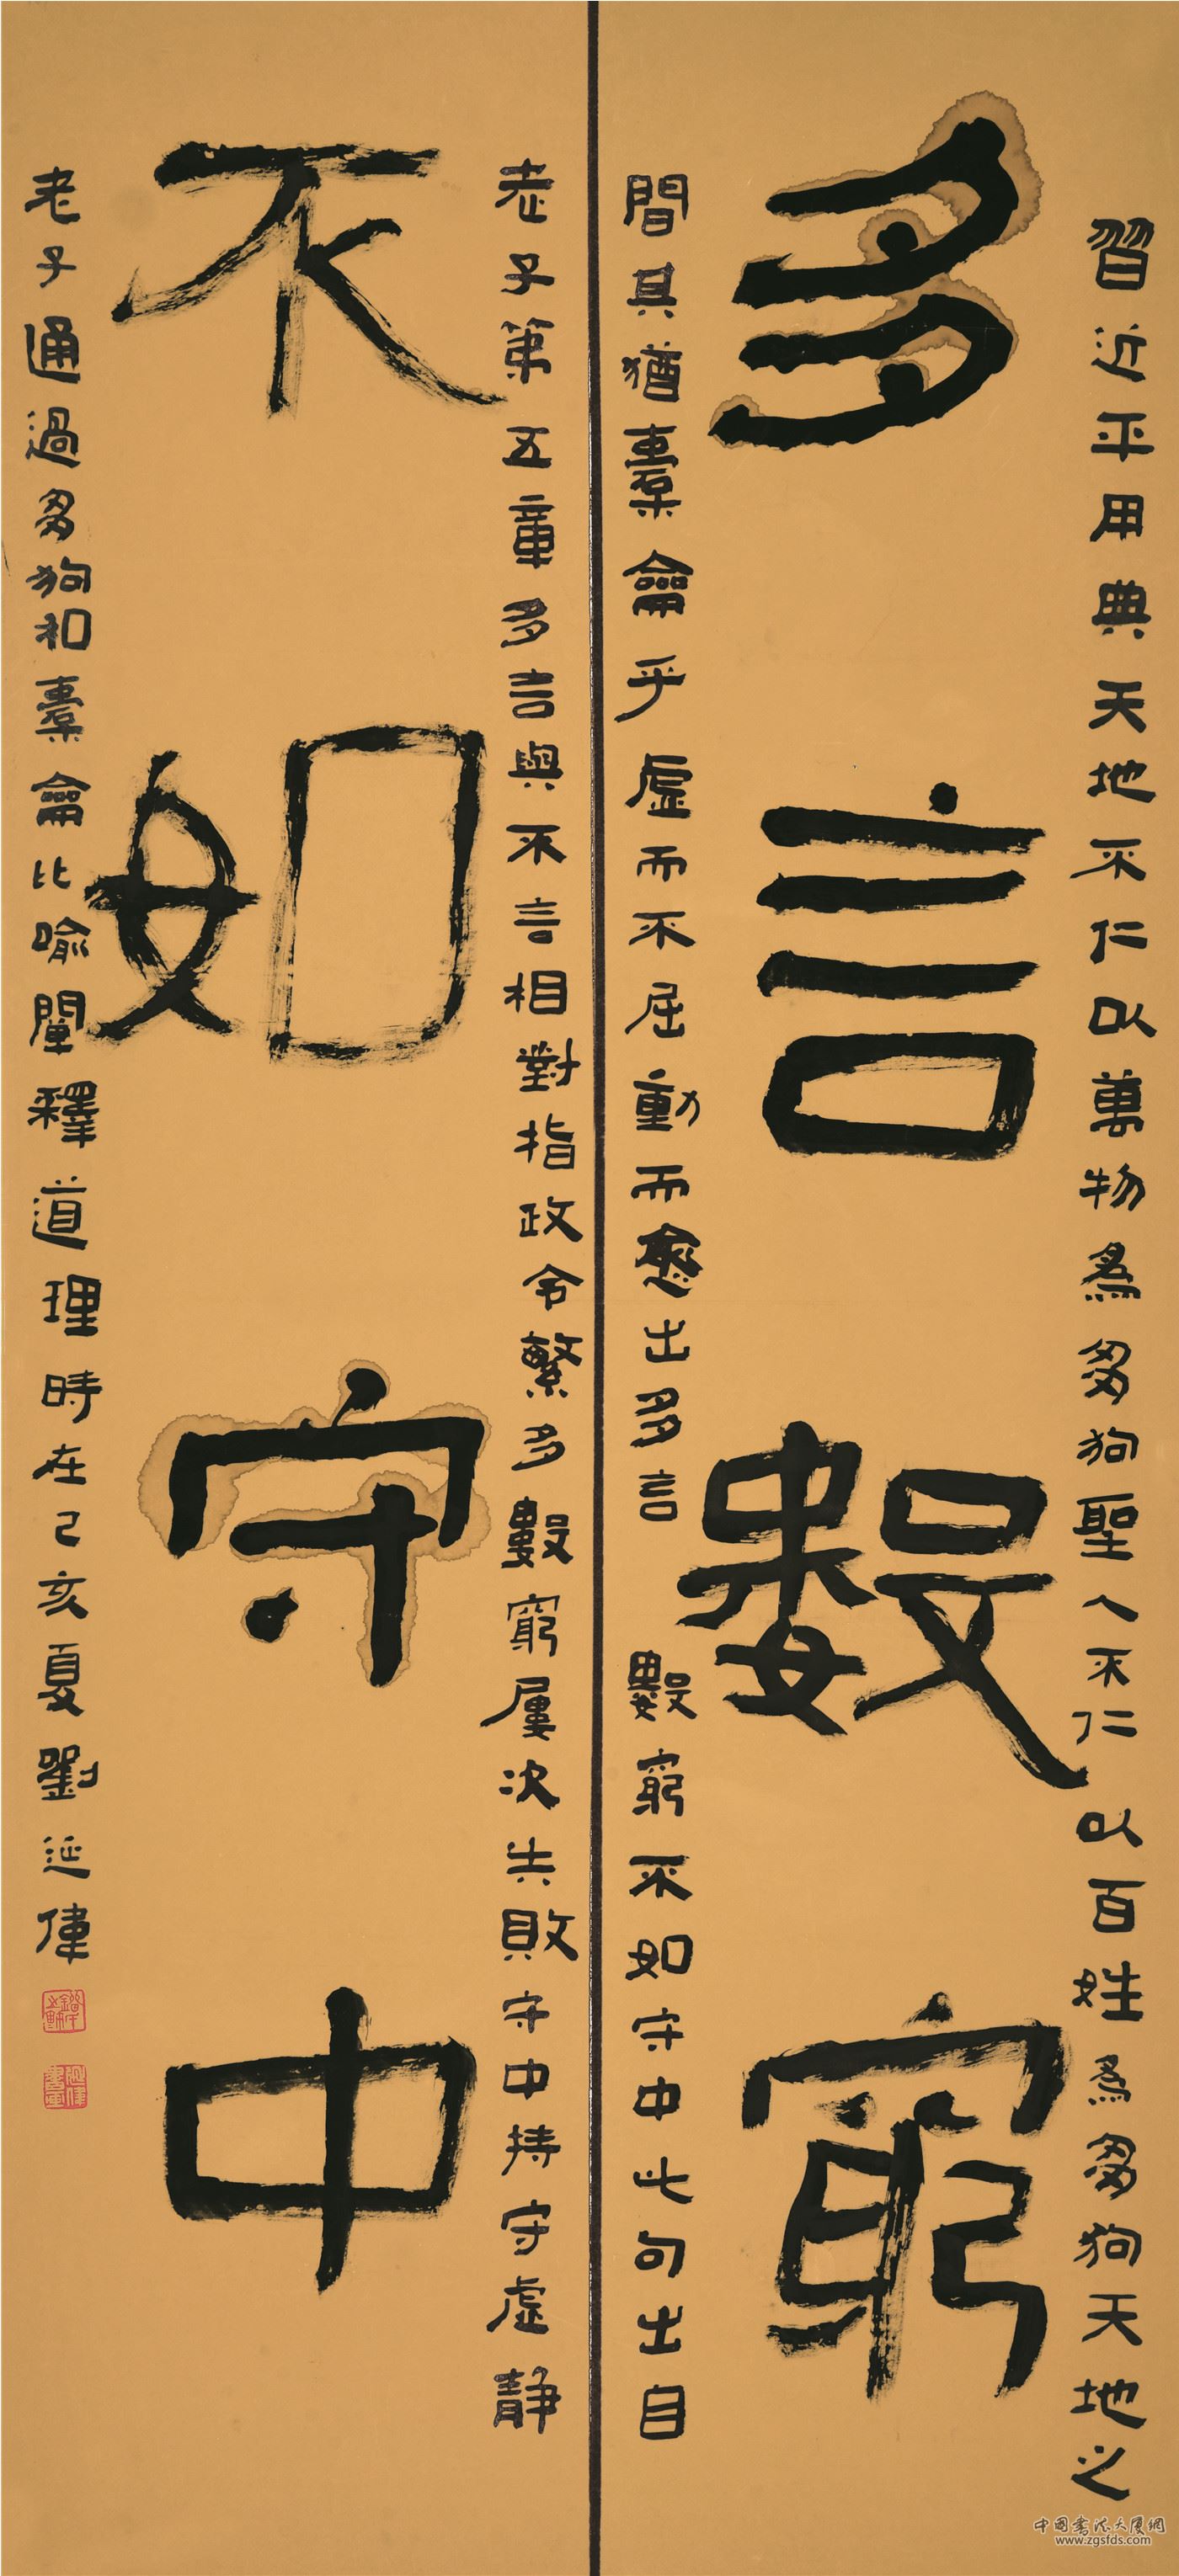 習近平用典天地不仁以萬物為芻狗聖人不仁以百姓為芻狗天地之
多言數窮
間其猶橐龠乎虛而不屈動而愈出多言數窮不如守中此句出自
老子第五章多言與不言相對指政令繁多數窮屢次失敗守中持守虛靜
不如守中
老子通過芻狗和橐龠比喻闡釋道理時在己亥夏劉延偉
中國書法大廈網
www.zgsfds.com